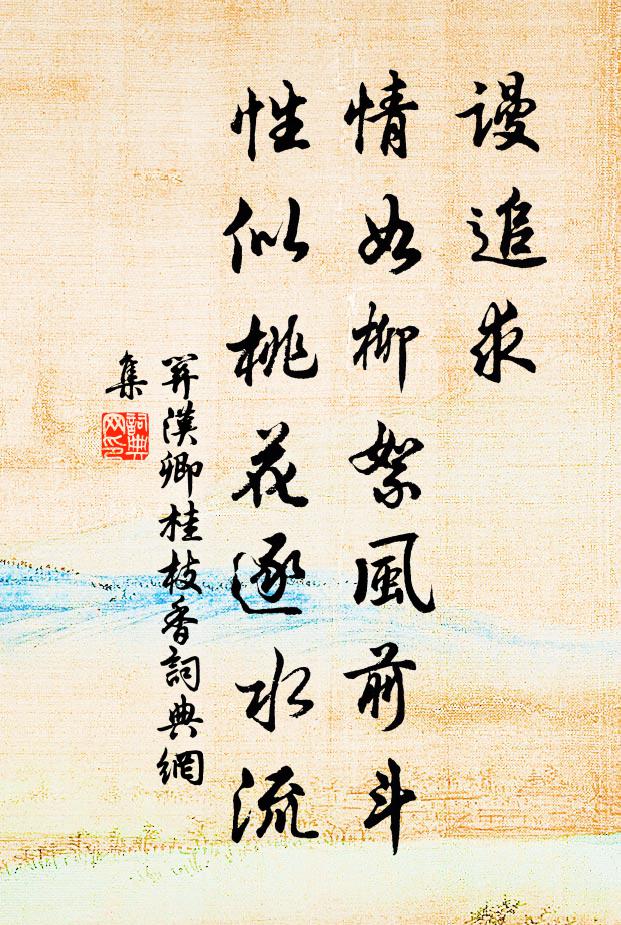 謾追求
情如柳絮風前斗
性似桃花逐水流
關漢卿桂枝香詞典網
集
詞典
網印